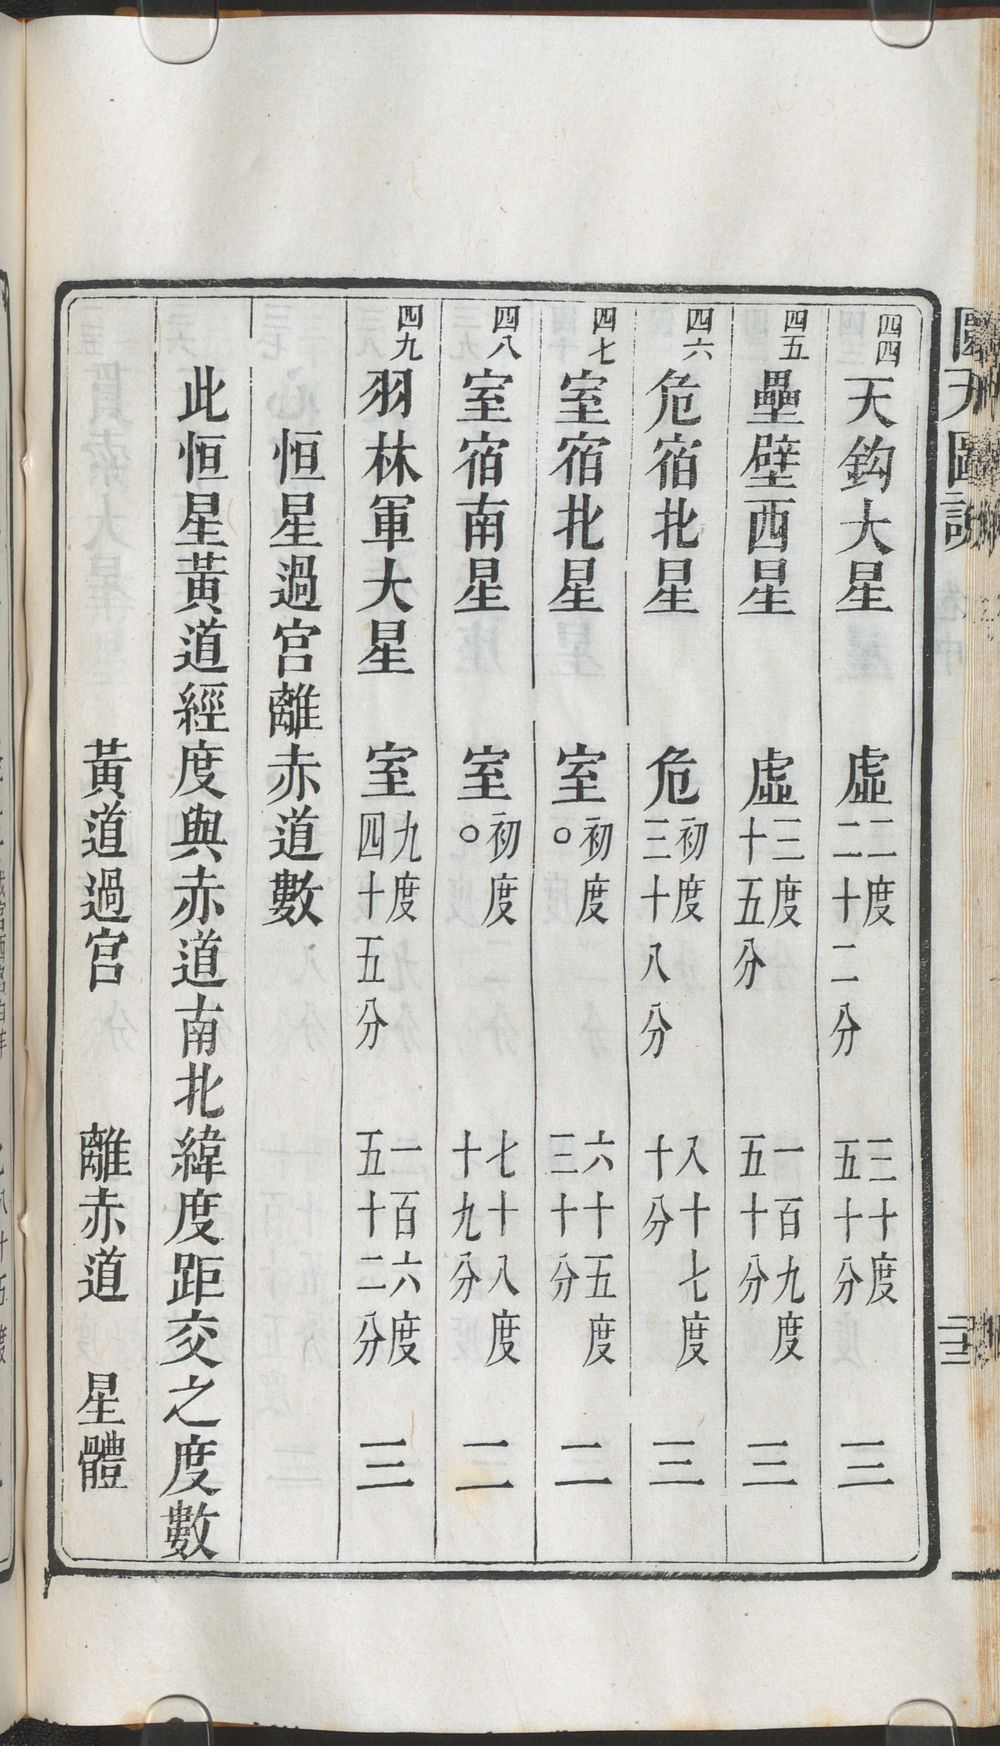 圜天圖說
四四 天鈎大星 虛 二度二十二分 三十度五十分 三
四五 壘壁西星 虛 三度十五分 一百九度五十分 三
四六 危宿北星 危 初度三十八分 八十七度十分 三
四七 室宿北星 室 初度〇 六十五度三十分 二
四八 室宿南星 室 初度〇 七十八度十九分 二
四九 羽林軍大星 室 九度四十五分 一百六度五十二分 三
恒星過宮離赤道數
此恒星黃道經度與赤道南北緯度距交之度數
黃道過宮 離赤道 星體